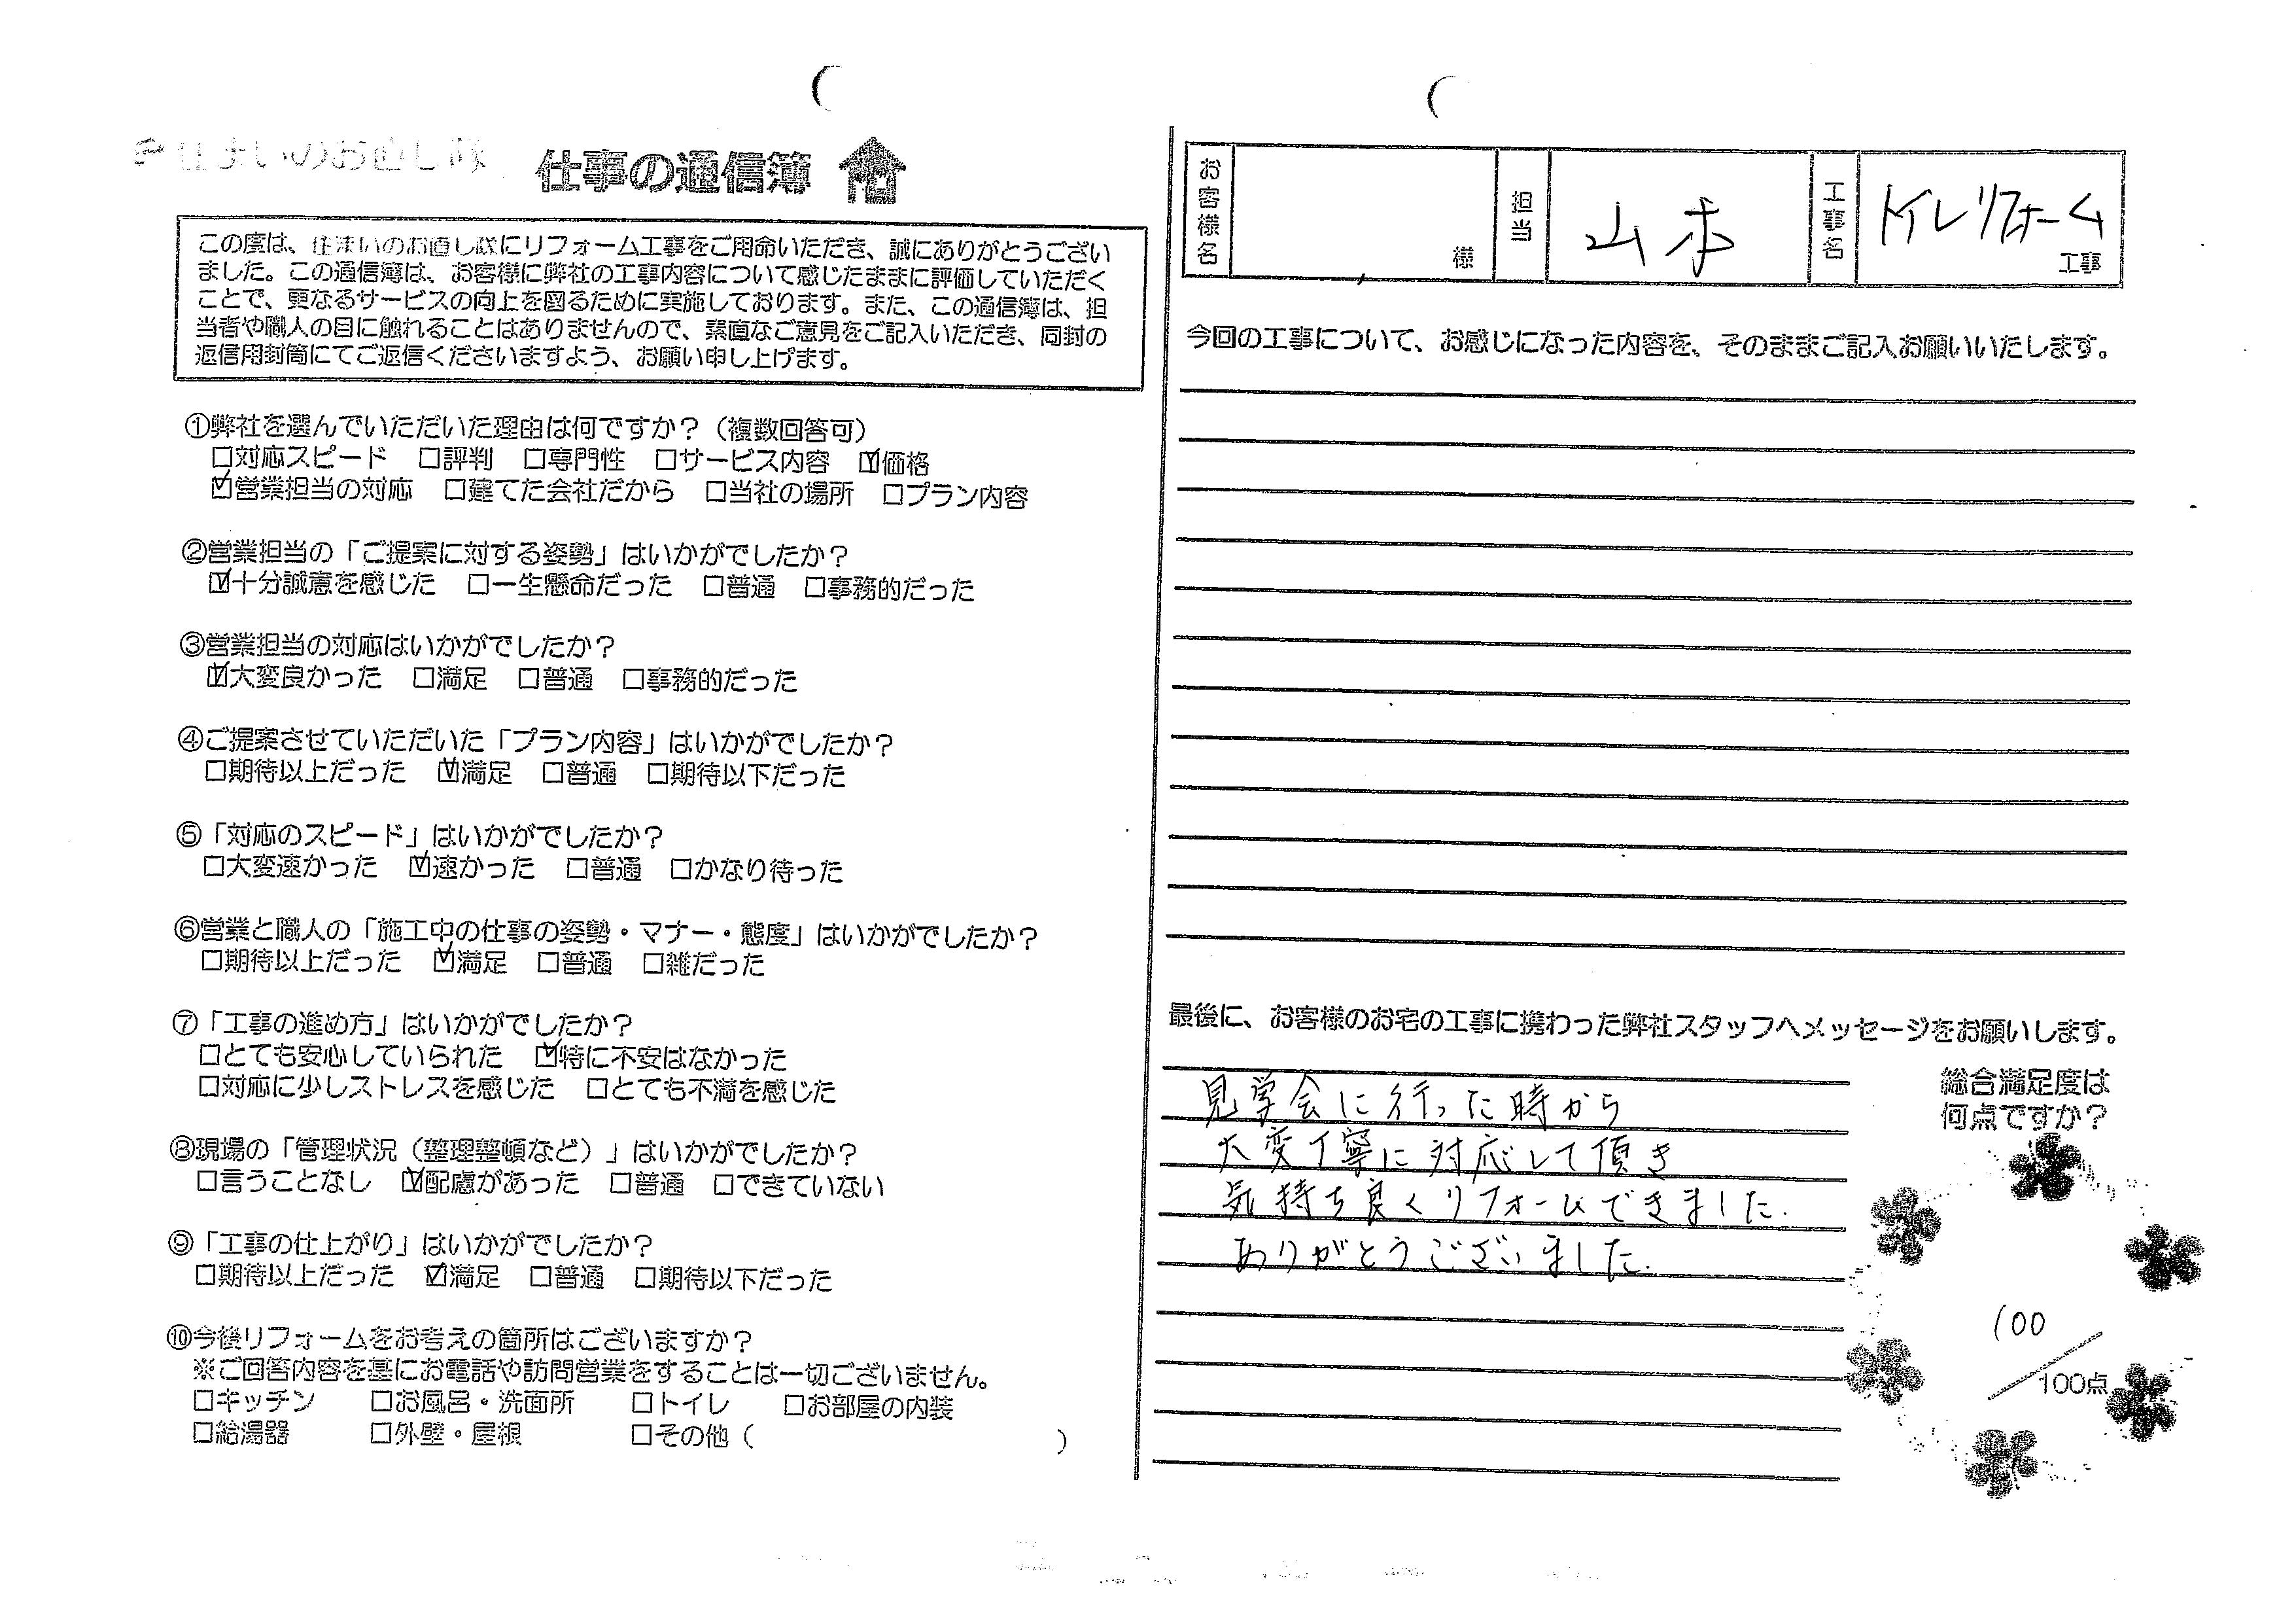 住まいのお直し隊
仕事の通信簿
この度は、住まいのお直し隊にリフォーム工事をご用命いただき、誠にありがとうござい
ました。この通信簿は、お客様に弊社の工事内容について感じたままに評価していただく
ことで、更なるサービスの向上を図るために実施しております。また、この通信簿は、担
当者や職人の目に触れることはありませんので、素直なご意見をご記入いただき、同封の
返信用封筒にてご返信くださいますよう、お願い申し上げます。
①弊社を選んでいただいた理由は何ですか？（複数回答可）
□対応スピード □評判 □専門性 □サービス内容 ☑価格
☑営業担当の対応 □建てた会社だから □当社の場所 □プラン内容
②営業担当の「ご提案に対する姿勢」はいかがでしたか？
☑十分誠意を感じた □一生懸命だった □普通 □事務的だった
③営業担当の対応はいかがでしたか？
☑大変良かった □満足 □普通 □事務的だった
④ご提案させていただいた「プラン内容」はいかがでしたか？
□期待以上だった ☑満足 □普通 □期待以下だった
⑤「対応のスピード」はいかがでしたか？
□大変速かった ☑速かった □普通 □かなり待った
⑥営業と職人の「施工中の仕事の姿勢・マナー・態度」はいかがでしたか？
□期待以上だった ☑満足 □普通 □雑だった
⑦「工事の進め方」はいかがでしたか？
□とても安心していられた ☑特に不安はなかった
□対応に少しストレスを感じた □とても不満を感じた
⑧現場の「管理状況（整理整頓など）」はいかがでしたか？
□言うことなし ☑配慮があった □普通 □できていない
⑨「工事の仕上がり」はいかがでしたか？
□期待以上だった ☑満足 □普通 □期待以下だった
⑩今後リフォームをお考えの箇所はございますか？
※ご回答内容を基にお電話や訪問営業をすることは一切ございません。
□キッチン □お風呂・洗面所 □トイレ □お部屋の内装
□給湯器 □外壁・屋根 □その他（ ）
お客様名 様 担当 山本 工事名 トイレリフォーム 工事
今回の工事について、お感じになった内容を、そのままご記入お願いいたします。
最後に、お客様のお宅の工事に携わった弊社スタッフへメッセージをお願いします。
見学会に行った時から
大変丁寧に対応して頂き
気持ち良くリフォームできました.
ありがとうございました.
総合満足度は
何点ですか？
100
100点